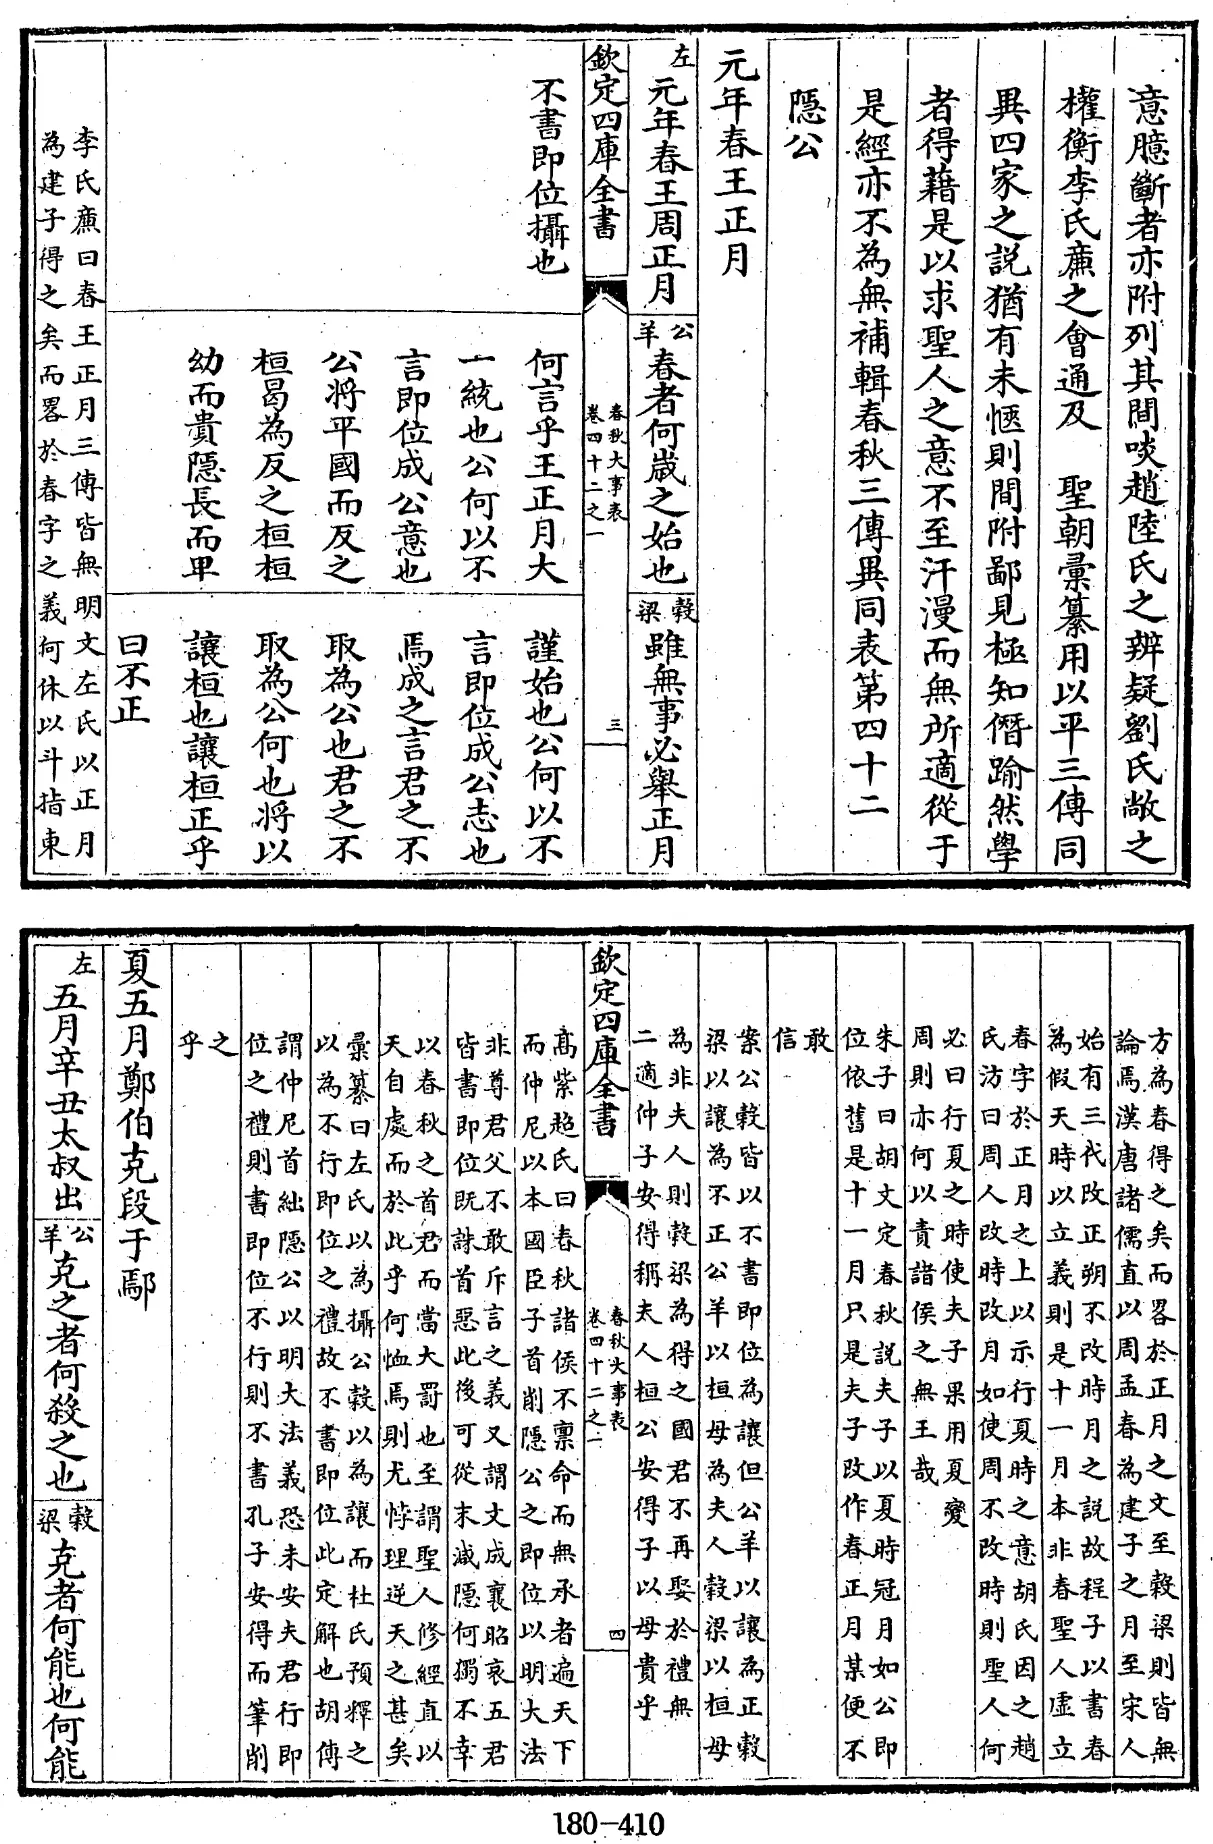 意臆斷者亦附列其間啖趙陸氏之辨疑劉氏敞之
權衡李氏廉之會通及　聖朝彙纂用以平三傳同
異四家之説猶有未愜則間附鄙見極知僭踰然學
者得藉是以求聖人之意不至汗漫而無所適從于
是經亦不為無補輯春秋三傳異同表第四十二
隱公
元年春王正月
左
元年春王周正月
公羊
春者何歲之始也
穀梁
雖無事必舉正月
欽定四庫全書
春秋大事表
卷四十二之一
三
不書即位攝也
何言乎王正月大
一統也公何以不
言即位成公意也
公將平國而反之
桓曷為反之桓桓
幼而貴隱長而卑
謹始也公何以不
言即位成公志也
焉成之言君之不
取為公也君之不
取為公何也將以
讓桓也讓桓正乎
曰不正
李氏廉曰春王正月三傳皆無明文左氏以正月
為建子得之矣而畧於春字之義何休以斗指東
方為春得之矣而畧於正月之文至穀梁則皆無
論焉漢唐諸儒直以周孟春為建子之月至宋人
始有三代改正朔不改時月之説故程子以書春
為假天時以立義則是十一月本非春聖人虛立
春字於正月之上以示行夏時之意胡氏因之趙
氏汸曰周人改時改月如使周不改時則聖人何
必曰行夏之時使夫子果用夏變
周則亦何以責諸侯之無王哉
朱子曰胡文定春秋説夫子以夏時冠月如公即
位依舊是十一月只是夫子改作春正月某便不
敢
信
案公穀皆以不書即位為讓但公羊以讓為正穀
梁以讓為不正公羊以桓母為夫人穀梁以桓母
為非夫人則穀梁為得之國君不再娶於禮無
二適仲子安得稱夫人桓公安得子以母貴乎
欽定四庫全書
春秋大事表
卷四十二之一
四
高紫超氏曰春秋諸侯不禀命而無承者遍天下
而仲尼以本國臣子首削隱公之即位以明大法
非尊君父不敢斥言之義又謂文成襄昭哀五君
皆書即位既誅首惡此後可從末減隱何獨不幸
以春秋之首君而當大罰也至謂聖人修經直以
天自處而於此乎何恤焉則尤悖理逆天之甚矣
彙纂曰左氏以為攝公穀以為讓而杜氏預釋之
以為不行即位之禮故不書即位此定解也胡傳
謂仲尼首絀隱公以明大法義恐未安夫君行即
位之禮則書即位不行則不書孔子安得而筆削
之
乎
夏五月鄭伯克段于鄢
左
五月辛丑太叔出
公羊
克之者何殺之也
穀梁
克者何能也何能
180-410